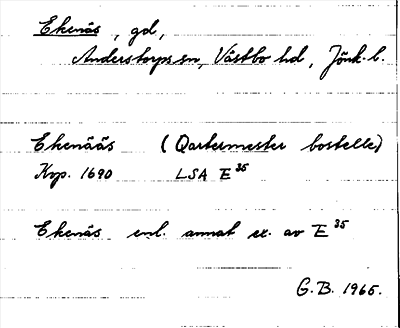 Ekenäs, gd,
Anderstorps sn, Västbo hd, Jönk. l.
Ekenääs (Qartermester bostelle)
Kop. 1690 LSA E 35
Ekenäs enl. annat ex. av E 35
G.B. 1965.